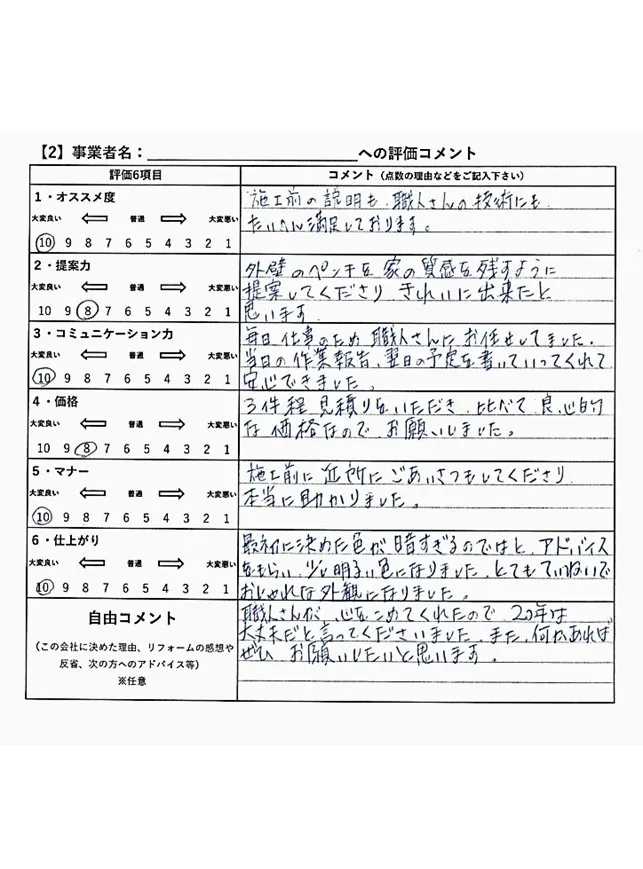 【2】事業者名：＿＿＿＿＿＿＿＿＿＿＿＿＿＿への評価コメント
評価6項目
コメント（点数の理由などをご記入下さい）
1・オススメ度
大変良い 普通 大変悪い
10 9 8 7 6 5 4 3 2 1
施工前の説明も、職人さんの技術にも
たいへん満足しております。
2・提案力
大変良い 普通 大変悪い
10 9 8 7 6 5 4 3 2 1
外壁のペンキを家の質感を残すように
提案してくださり きれいに出来たと
思います
3・コミュニケーション力
大変良い 普通 大変悪い
10 9 8 7 6 5 4 3 2 1
毎日仕事のため職人さんにお任せしてました。
当日の作業報告、翌日の予定を書いていってくれて
安心できました。
4・価格
大変良い 普通 大変悪い
10 9 8 7 6 5 4 3 2 1
3件程見積りをいただき、比べて良心的
な価格なので お願いしました。
5・マナー
大変良い 普通 大変悪い
10 9 8 7 6 5 4 3 2 1
施工前に近所にごあいさつもしてくださり
本当に助かりました。
6・仕上がり
大変良い 普通 大変悪い
10 9 8 7 6 5 4 3 2 1
最初に決めた色が暗すぎるのではと、アドバイス
をもらい、少し明るい色になりました。とてもていねいで
おしゃれな外観になりました。
自由コメント
（この会社に決めた理由、リフォームの感想や
反省、次の方へのアドバイス等）
※任意
職人さんが、心をこめてくれたので、20年は
大丈夫だと言ってくださいました。また、何かあれば
ぜひ お願いしたいと思います。